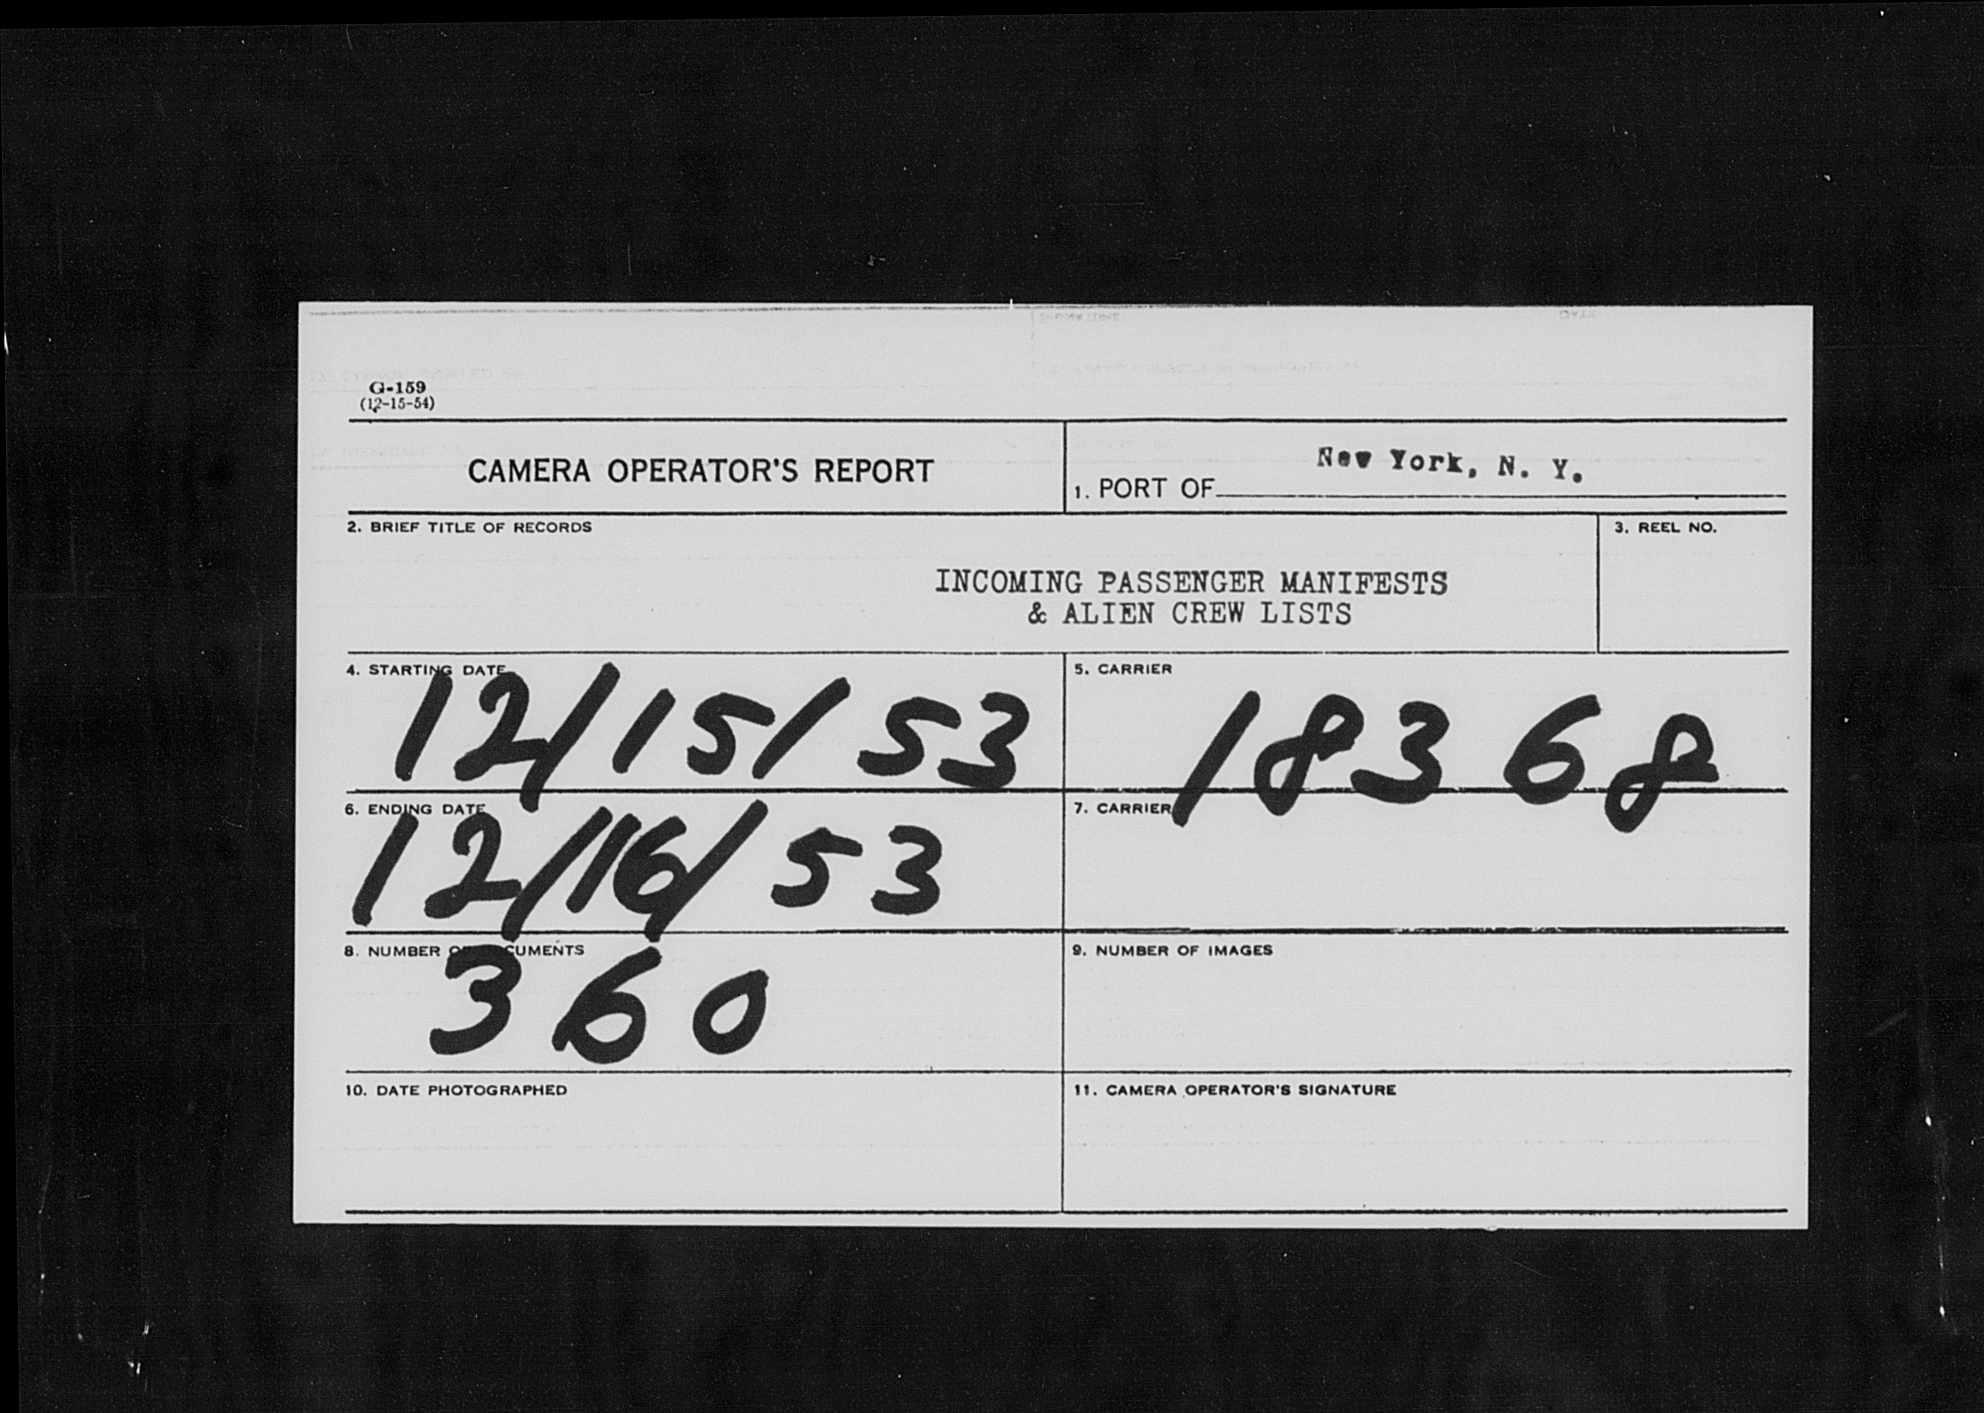 G-159
(12-15-54)
CAMERA OPERATOR'S REPORT
1. PORT OF New York, N. Y.
2. BRIEF TITLE OF RECORDS
3. REEL NO.
INCOMING PASSENGER MANIFESTS
& ALIEN CREW LISTS
4. STARTING DATE
12/15/53
5. CARRIER
18368
6. ENDING DATE
12/16/53
7. CARRIER
8. NUMBER OF DOCUMENTS
360
9. NUMBER OF IMAGES
10. DATE PHOTOGRAPHED
11. CAMERA OPERATOR'S SIGNATURE